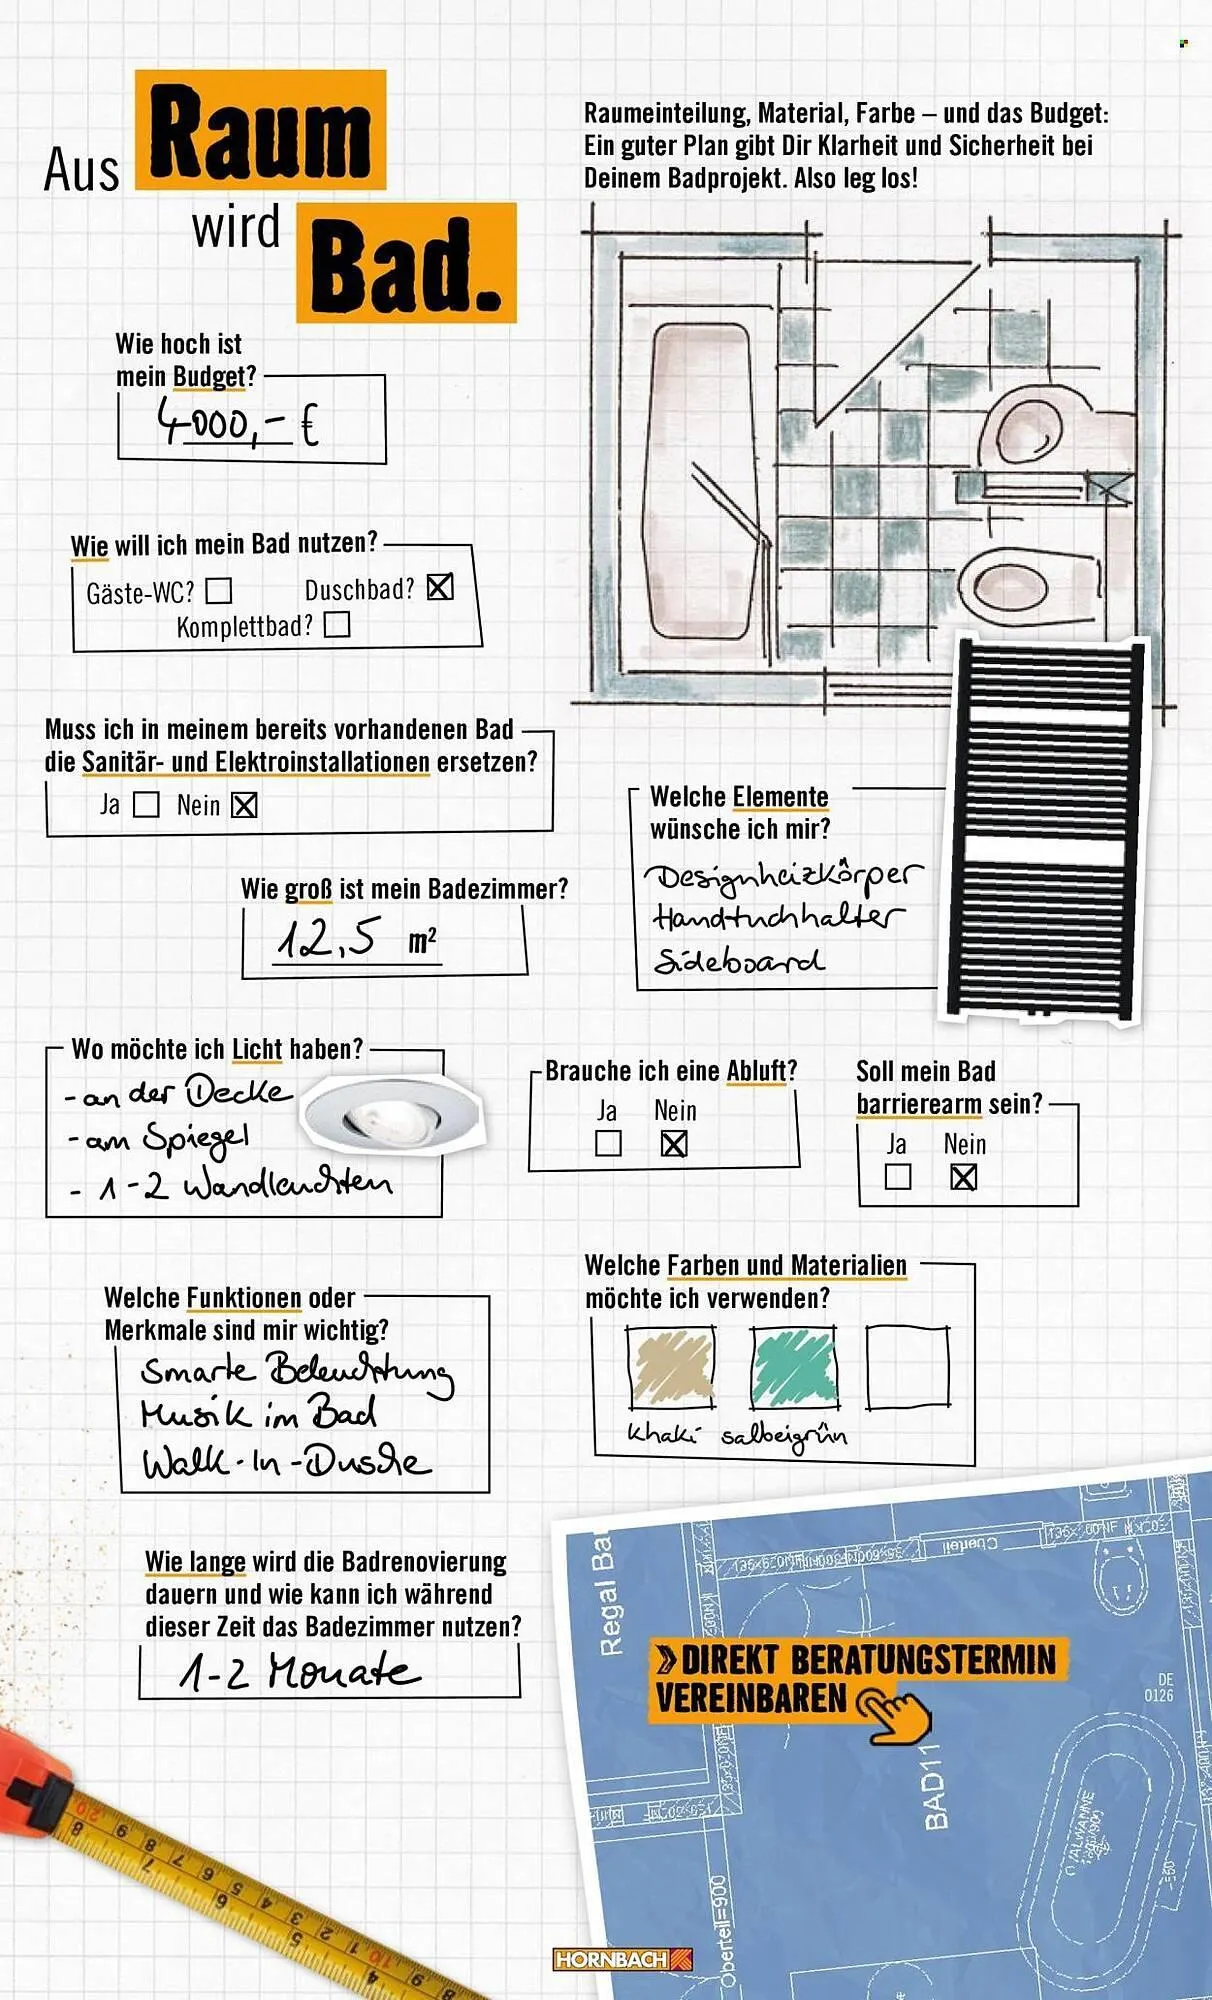 Aus Raum
wird Bad.
Raumeinteilung, Material, Farbe – und das Budget:
Ein guter Plan gibt Dir Klarheit und Sicherheit bei
Deinem Badprojekt. Also leg los!
Wie hoch ist
mein Budget?
4000,- €
Wie will ich mein Bad nutzen?
Gäste-WC? ☐ Duschbad? ☒
Komplettbad? ☐
Muss ich in meinem bereits vorhandenen Bad
die Sanitär- und Elektroinstallationen ersetzen?
Ja ☐ Nein ☒
Welche Elemente
wünsche ich mir?
Designheizkörper
Handtuchhalter
Sideboard
Wie groß ist mein Badezimmer?
12,5 m²
Wo möchte ich Licht haben?
- an der Decke
- am Spiegel
- 1-2 Wandleuchten
Brauche ich eine Abluft?
Ja Nein
☐ ☒
Soll mein Bad
barrierearm sein?
Ja Nein
☐ ☒
Welche Funktionen oder
Merkmale sind mir wichtig?
Smarte Beleuchtung
Musik im Bad
Walk-In-Dusche
Welche Farben und Materialien
möchte ich verwenden?
khaki salbeigrün
Wie lange wird die Badrenovierung
dauern und wie kann ich während
dieser Zeit das Badezimmer nutzen?
1-2 Monate
Regal Ba
» DIREKT BERATUNGSTERMIN
VEREINBAREN
DE
0126
BAD11
Oberteil=900
HORNBACH